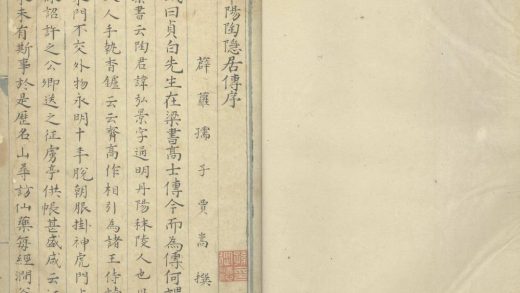 陽陶隐居傳序
薜蘿孺子賈嵩撰
或曰貞白先生在梁書高士傳今而為傳何
梁書云陶君諱弘景字通明丹陽秣陵人也
人手執香鑪云云齊高作相引為諸王侍
門不交外物永明十年脫朝服掛神虎門
詔許之公卿送之征虜亭供帳甚盛咸云
未有斯事於是歷名山尋訪仙藥每經澗